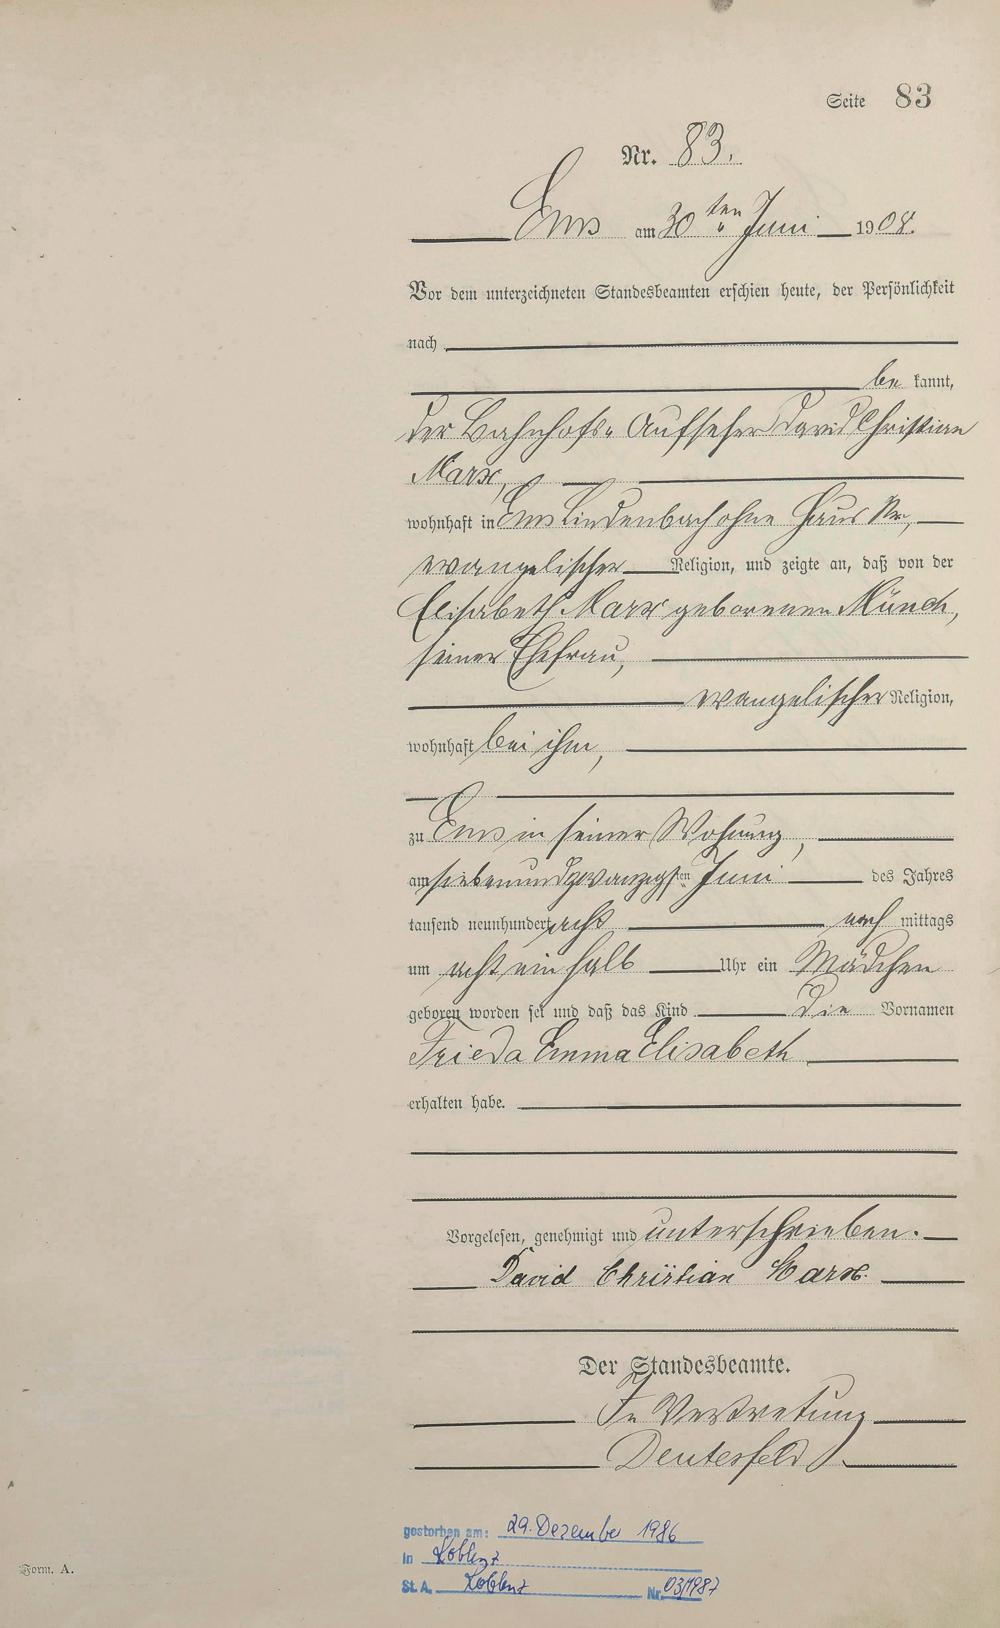 Seite 83
Nr. 83.
Ems am 30ten Juni 1908.
Vor dem unterzeichneten Standesbeamten erschien heute, der Persönlichkeit
nach
be kannt,
der Bahnhofs-Aufseher David Christian
Marx,
wohnhaft in Ems Lindenbach ohne Haus Nr.,
evangelischer Religion, und zeigte an, daß von der
Elisabeth Marx geborenen Münch,
seiner Ehefrau,
evangelischer Religion,
wohnhaft bei ihm,
zu Ems in seiner Wohnung,
am siebenundzwanzigsten Juni des Jahres
tausend neunhundert acht nach mittags
um acht ein halb Uhr ein Mädchen
geboren worden sei und daß das Kind die Vornamen
Frieda Emma Elisabeth
erhalten habe.
Vorgelesen, genehmigt und unterschrieben.
David Christian Marx.
Der Standesbeamte.
In Vertretung
gestorben am: 29. Dezember 1986
in Koblenz
St. A. Koblenz Nr. 03/1987
Form. A.